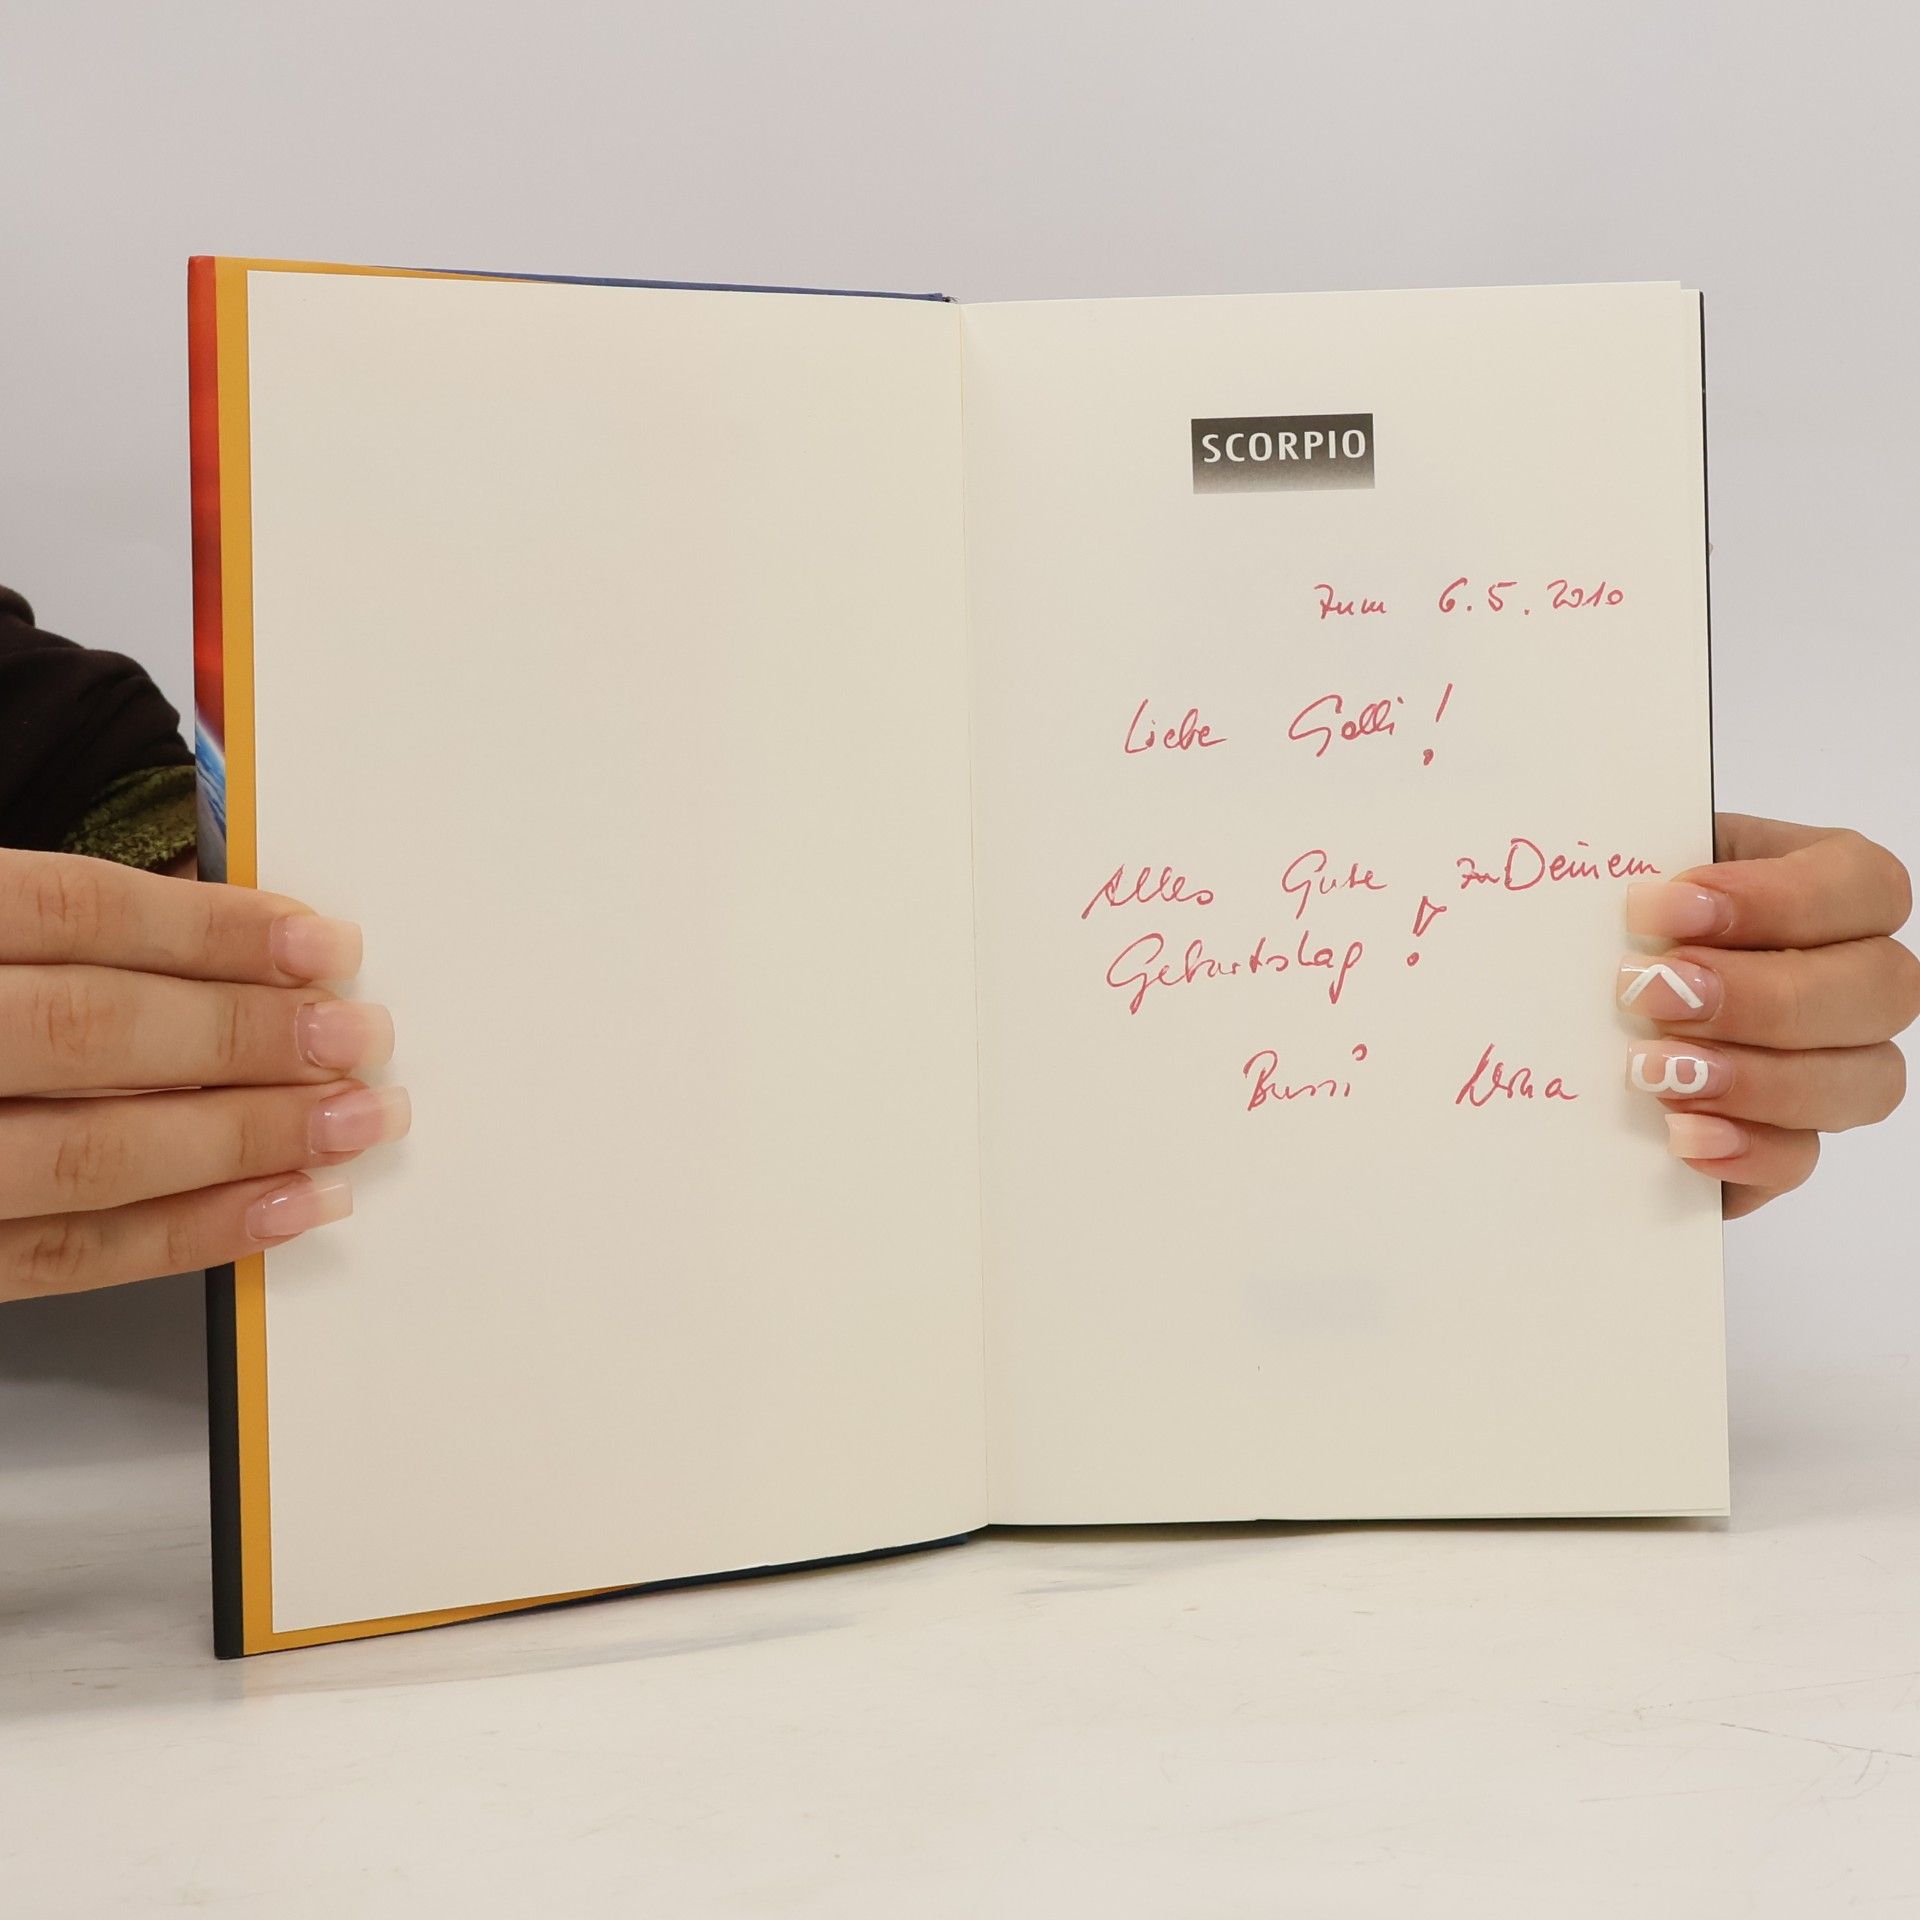 SCORPIO
zum 6.5.2010
Liebe !
Alles Gute zu Deinem
Geburtstag !
Bussi